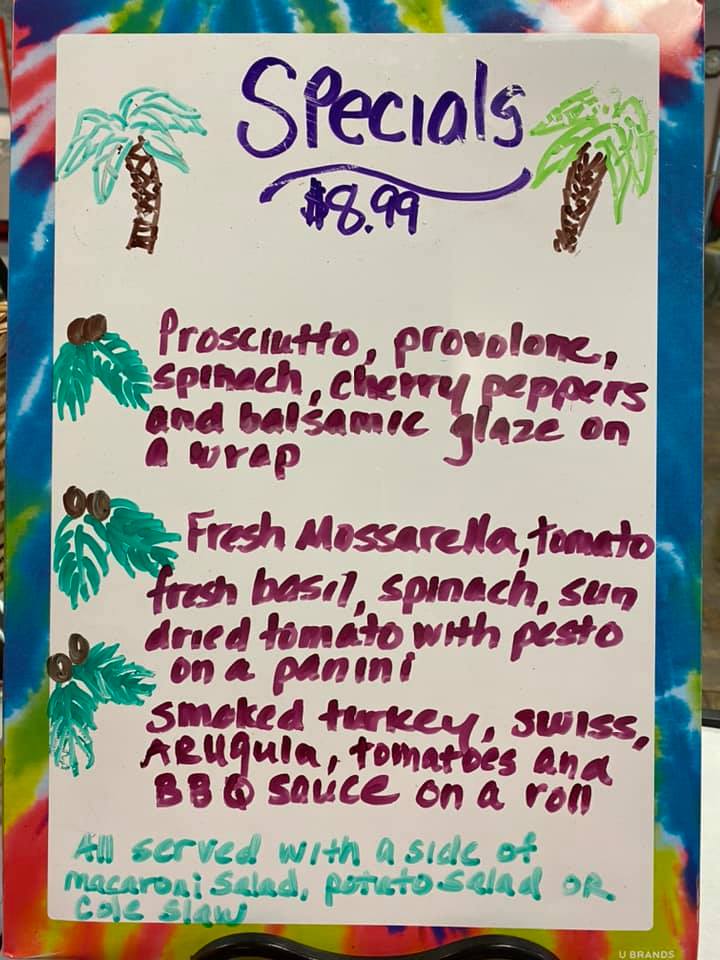 Specials
$8.99
Prosciutto, provolone,
spinach, cherry peppers
and balsamic glaze on
a wrap
Fresh Mossarella, tomato
fresh basil, spinach, sun
dried tomato with pesto
on a panini
smoked turkey, swiss,
ARUgula, tomatoes and
BBQ sauce on a roll
All served with a side of
macaroni salad, potato salad OR
Cole slaw
U BRANDS